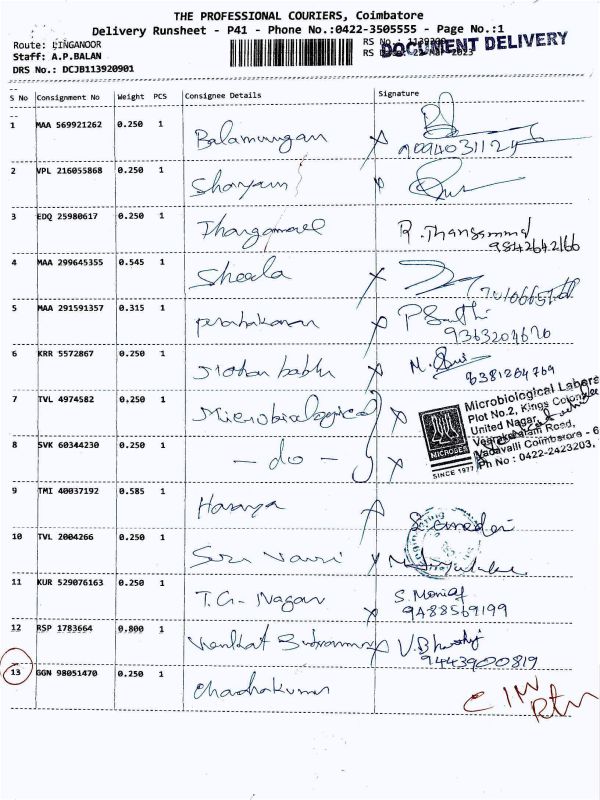 THE PROFESSIONAL COURIERS, Coimbatore
Delivery Runsheet - P41 - Phone No.:0422-3505555 - Page No.:1
Route: LINGANOOR
Staff: A.P.BALAN
DRS No.: DCJB113920901
RS No.:
DOCUMENT DELIVERY
S No Consignment No Weight PCS Consignee Details Signature
1 MAA 569921262 0.250 1 Balamurugan
2 VPL 216055868 0.250 1 Shanjam
3 EDQ 25980617 0.250 1 Thangamael R. Thangammal
9842642166
4 MAA 299645355 0.545 1 Sheela
5 MAA 291591357 0.315 1 prabhakaran P Santhi
9363204670
6 KRR 5572867 0.250 1 Mohan babu
8381264769
7 TVL 4974582 0.250 1 Microbiological
8 SVK 60344230 0.250 1 - do -
Microbiological Labora
Plot No.2, Kings Colony
United Nagar,
Veerakeralam Road,
Vadavalli Coimbatore - 6
Ph No : 0422-2423203,
SINCE 1977
9 TMI 40037192 0.585 1
10 TVL 2004266 0.250 1
11 KUR 529076163 0.250 1 T.G. Nagar S. Monial
9488569199
12 RSP 1783664 0.800 1 Venkat
9443900819
13 GGN 98051470 0.250 1 Chandrakumar
Rtn